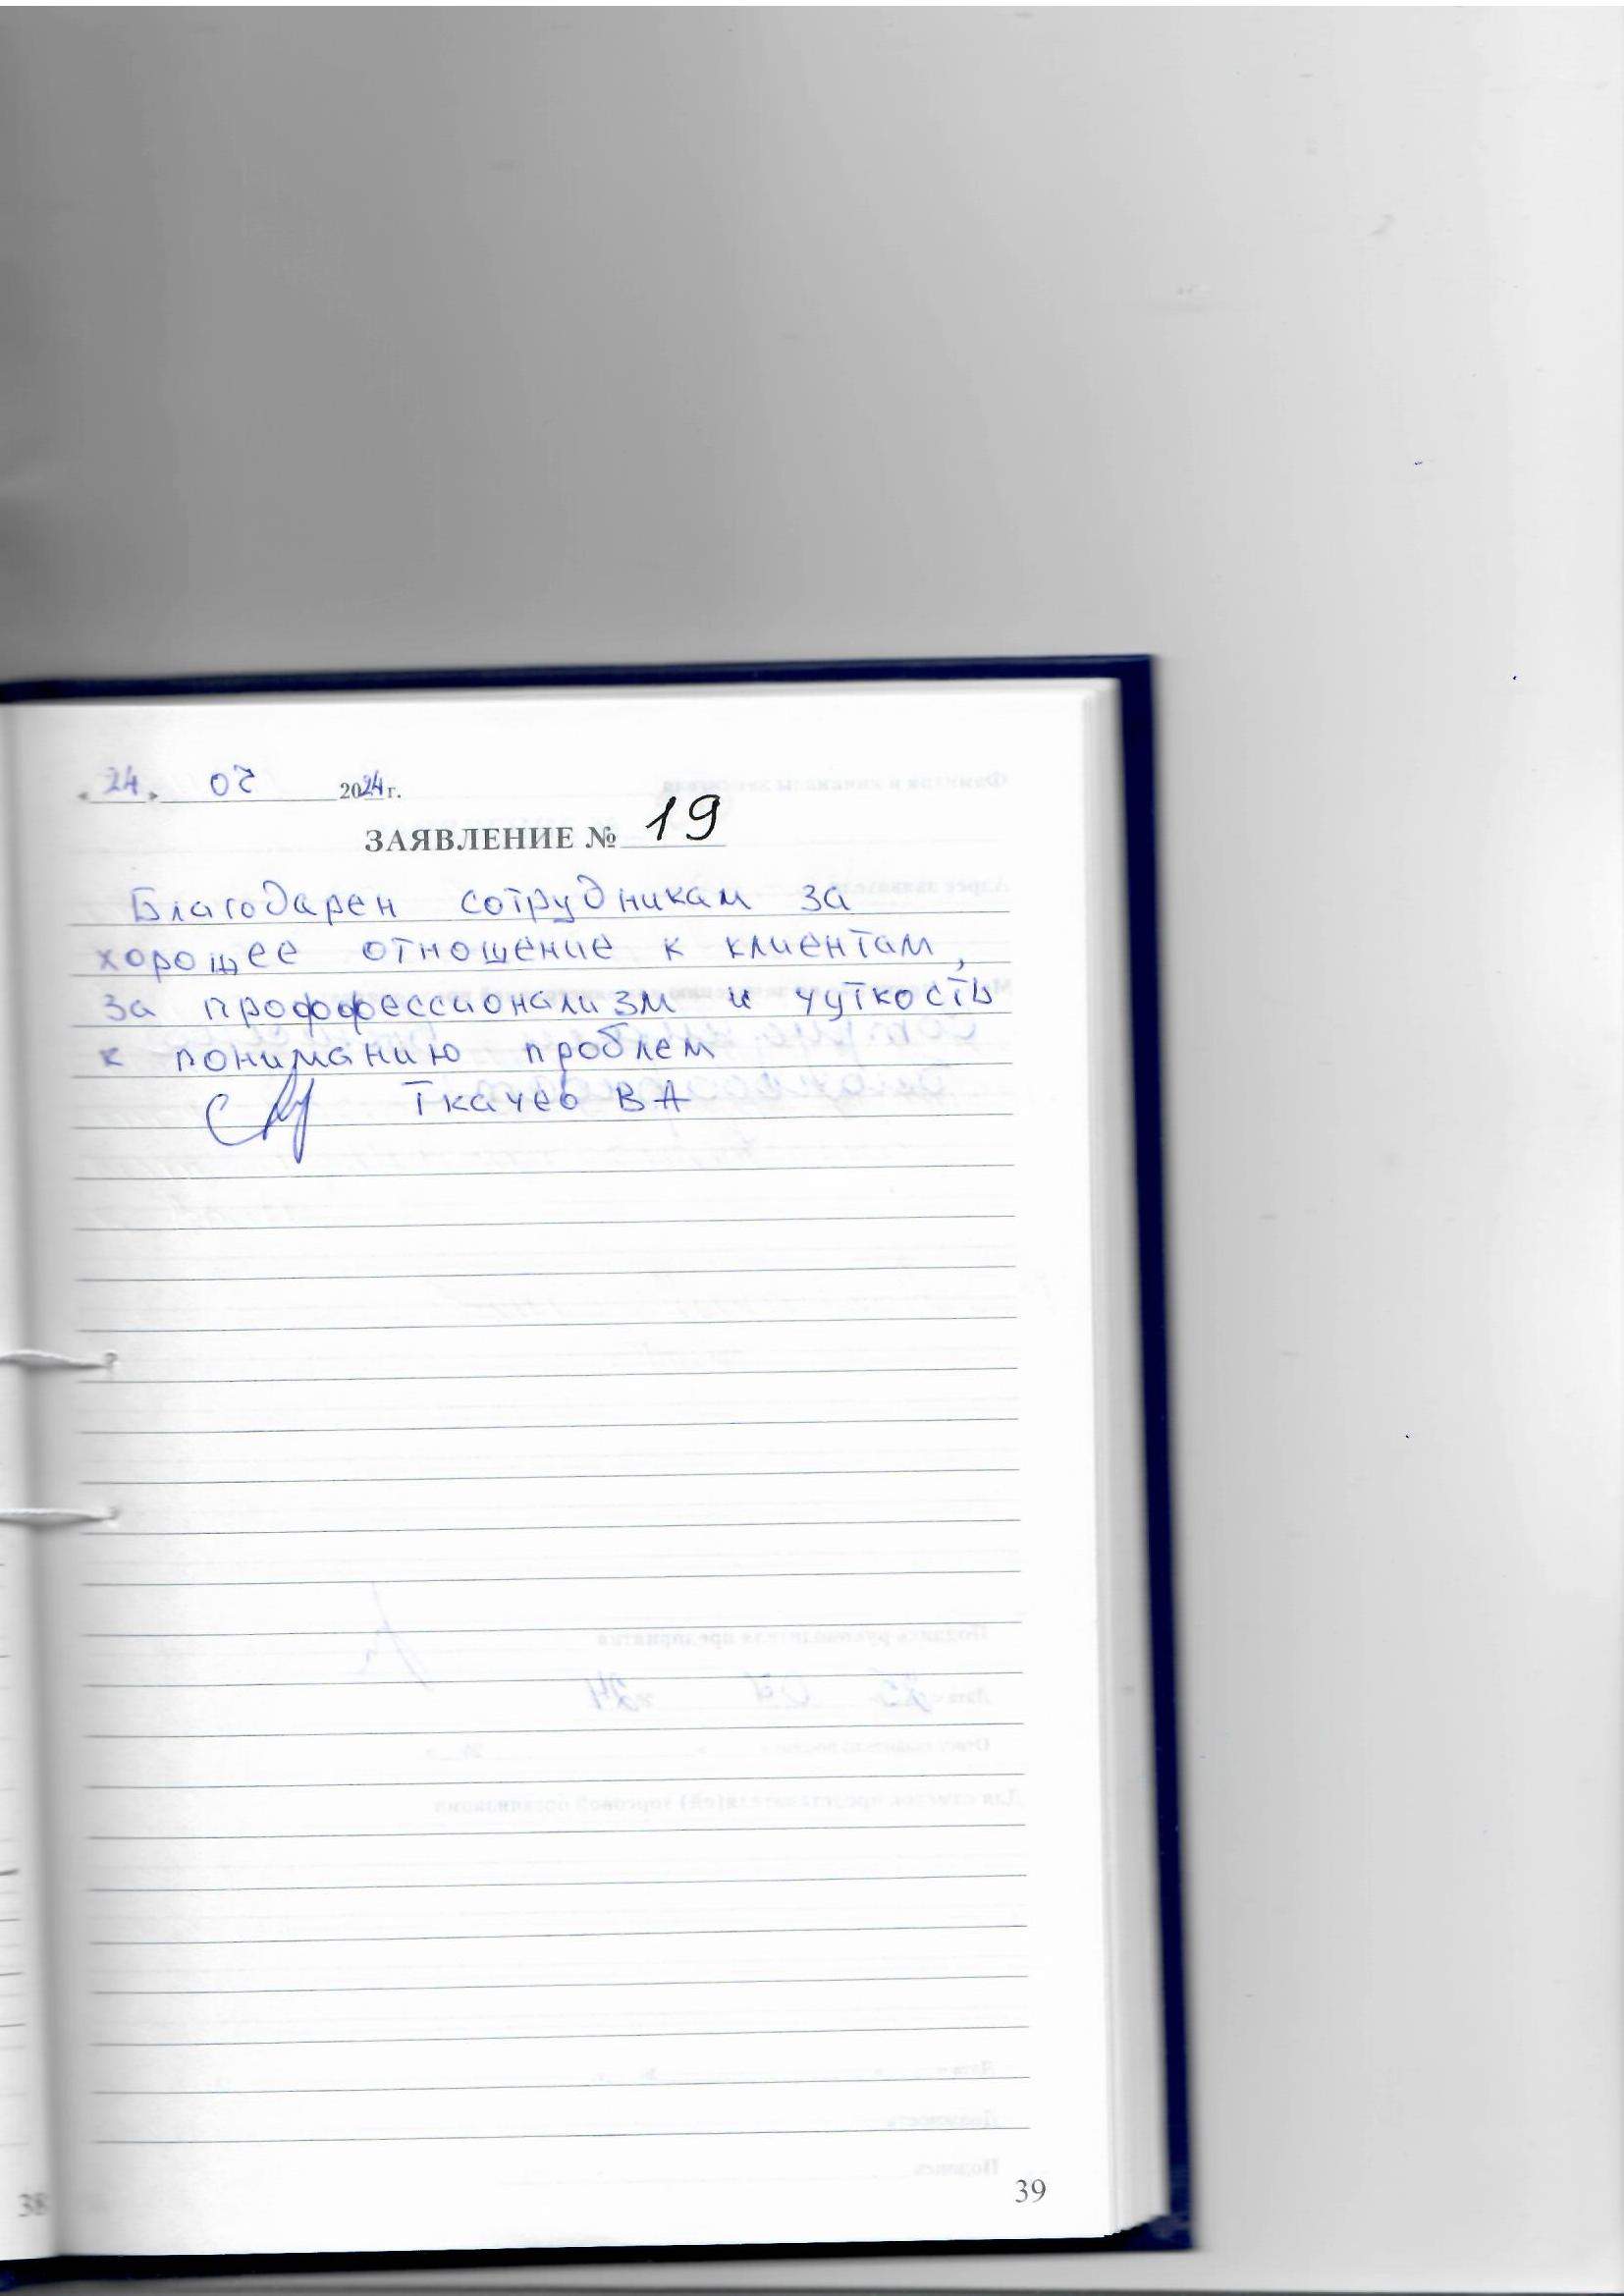 « 24 » 05 2024 г.
ЗАЯВЛЕНИЕ № 19
Благодарен сотрудникам за
хорошее отношение к клиентам,
за профофессионализм и чуткость
к пониманию проблем
Ткачев В А
38
39